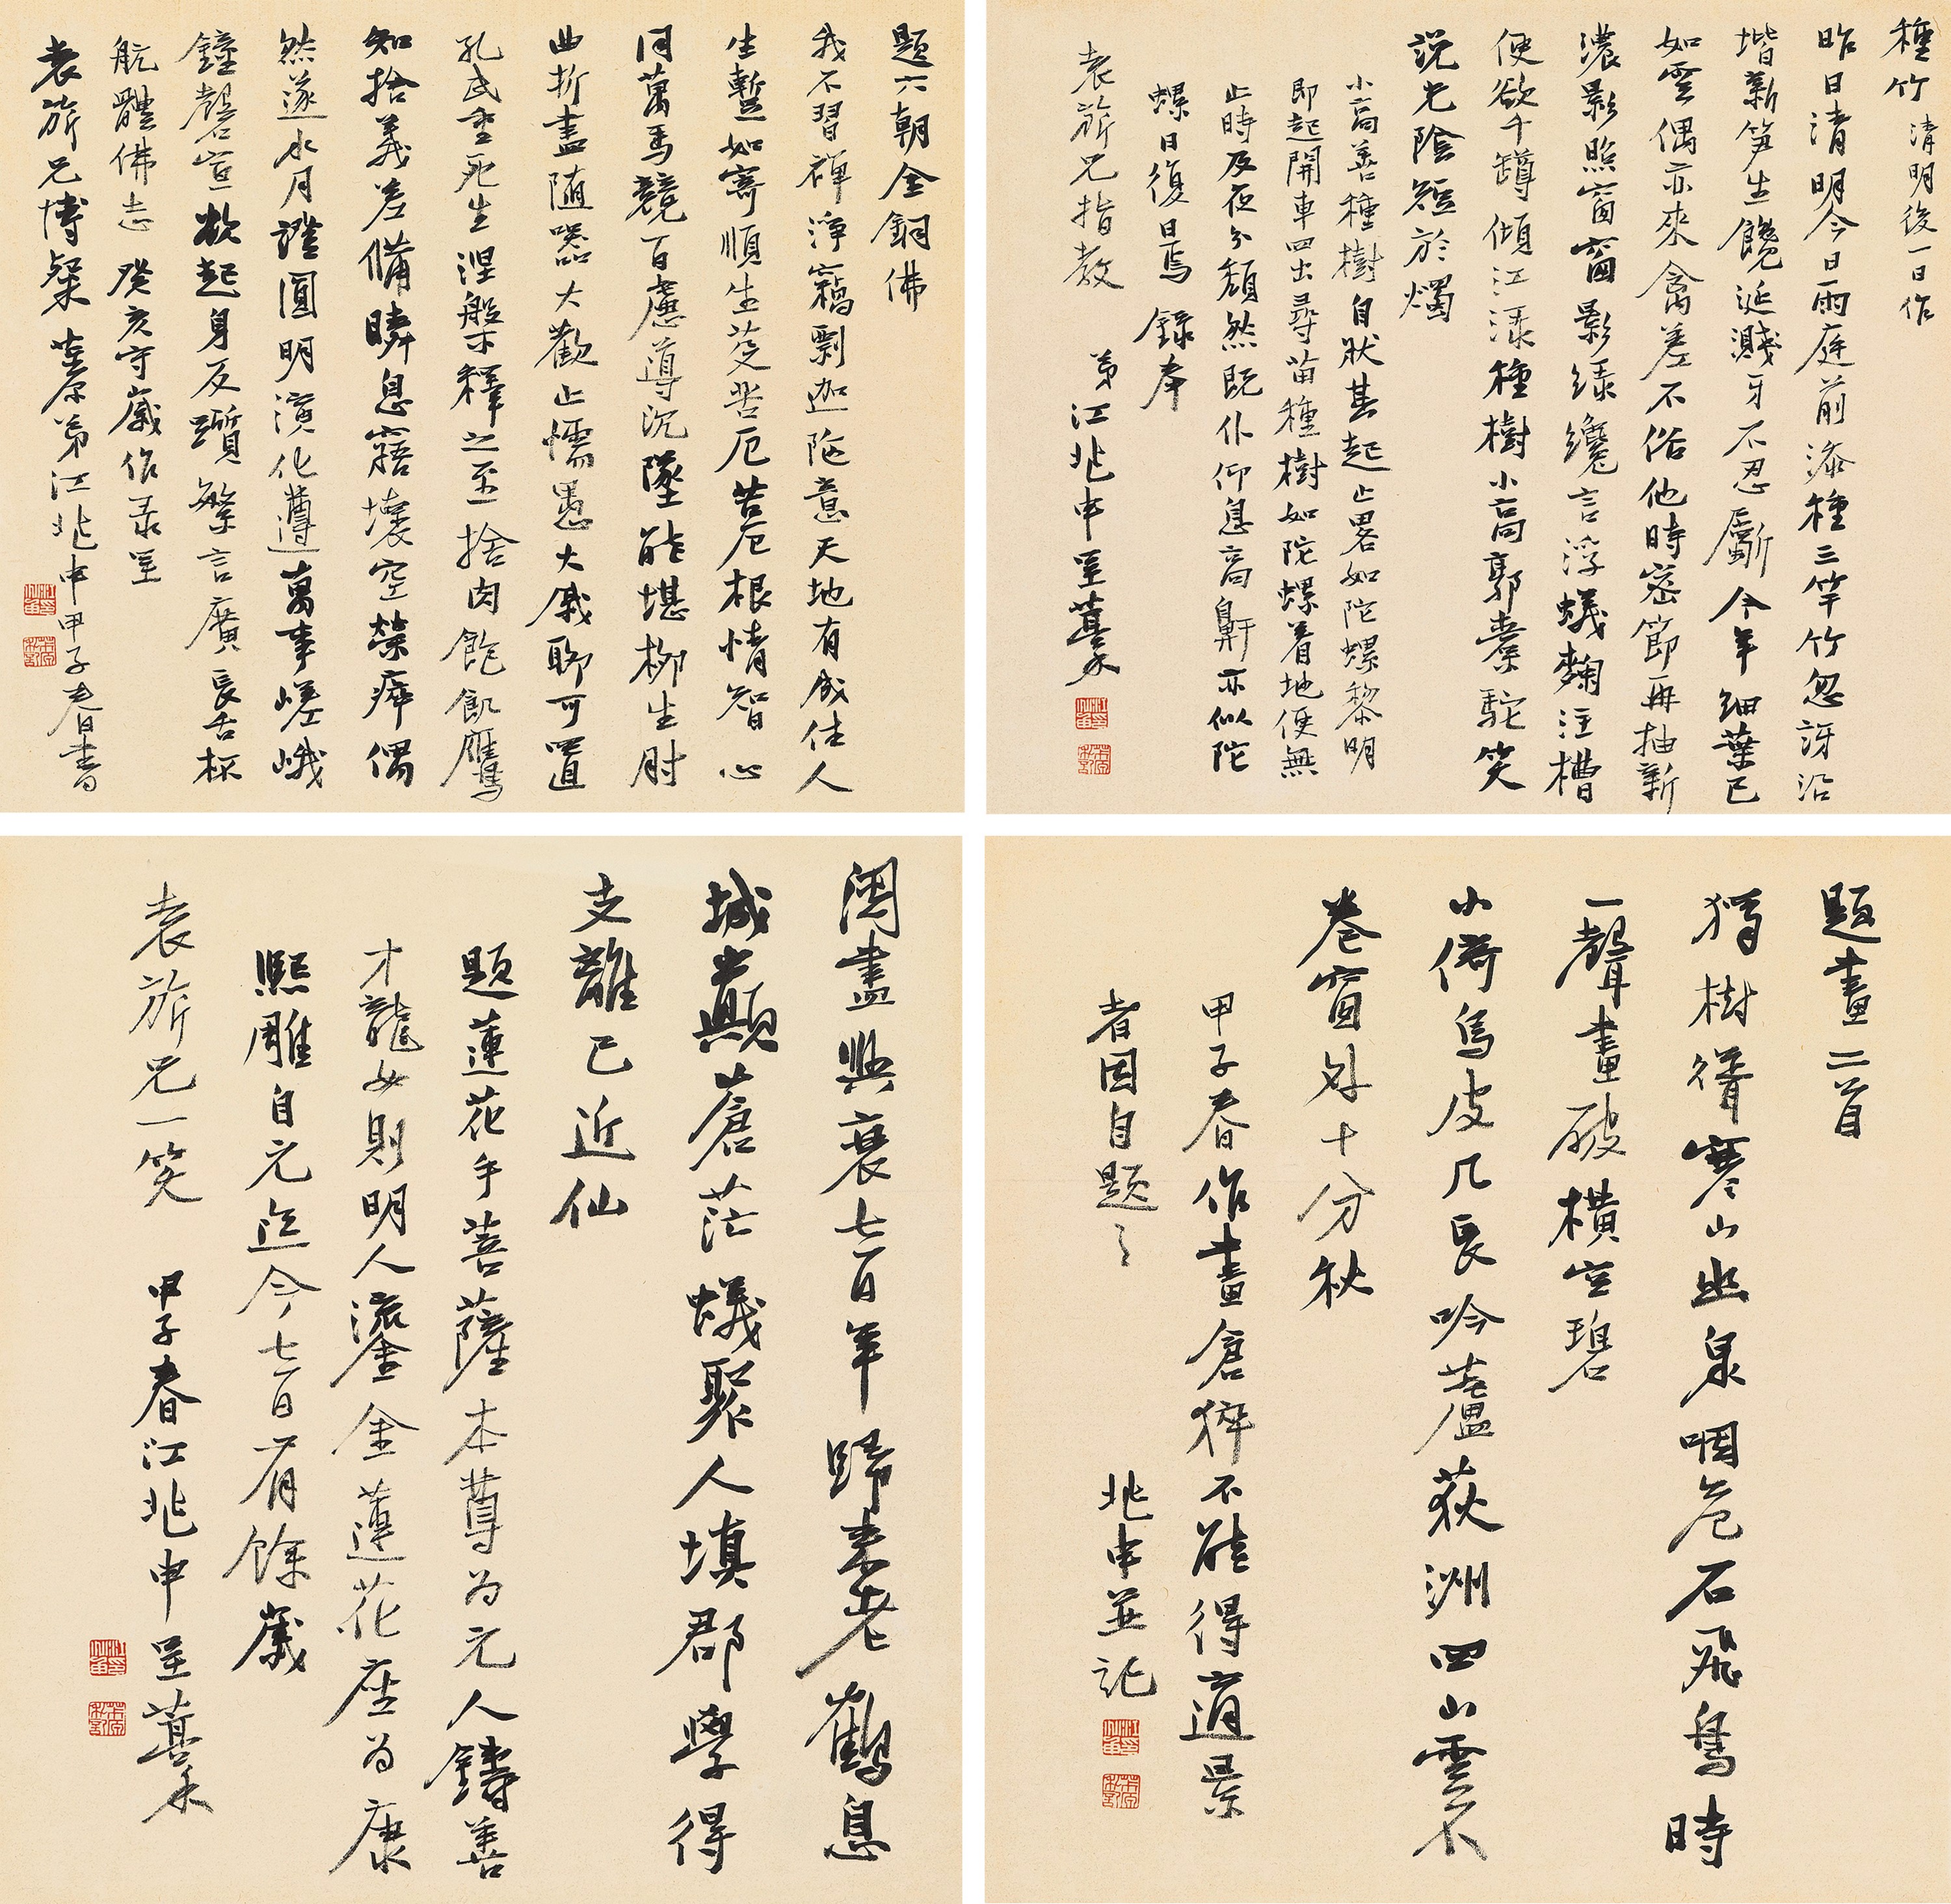 種竹 清明後一日作
昨日清明今日雨庭前添種三竿竹忽訝沿
堦新笋生饞涎濺牙不忍斸今年細葉已
如雲偶亦來禽差不俗他時密節再抽新
濃影照窗窗影綠纔言浮蟻麴注槽
便欲千罇傾江淥種樹小高郭橐駝笑
說光陰短於燭
小高善種樹自狀其起止畧如陀螺黎明
即起開車四出尋苗種樹如陀螺着地便無
止時及夜分頹然既仆仰息高鼾亦似陀
螺日復日焉 錄奉
袁旂兄指教 弟江兆申呈藁
題六朝金銅佛
我不習禪淨竊剽迦陀意天地有成住人
生暫如寄順生茭苦厄苦厄根情智心
同萬馬競百慮導沉墜能堪柳生肘
曲折盡隨器大歡止懦愚大戚聊可置
孔武重死生涅槃不釋之至捨肉飽飢鷹
知捨義差備瞬息寤壞空榮瘁偶
然遂水月證圓明演化遵萬事嵯峨
鐘磬宣欲起身反躓繁言廣長舌杯
航體佛志 癸亥守歲作录呈
袁旂兄博粲 茮原弟江兆申 甲子春日書
題畫二首
獨樹得寒山幽泉咽危石飛鳥時
一聲畫破橫空碧
小倚烏皮几長吟蘆荻洲四山雲不
卷窗外十分秋
甲子春作畫倉猝不能得適景
者因自題之 兆申並記
閱盡興衰七百年歸來老鶴息
城顛蒼茫蟻聚人填郡學得
支離已近仙
題蓮花手菩薩本尊為元人鑄善
才龍女則明人鎏金金蓮花座為康
熙雕自元迄今七百有餘歲
袁旂兄一笑 甲子春江兆申呈藁